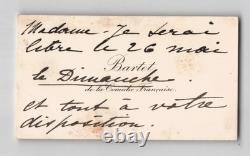 Madame - Je serai
libre le 26 mai
Bartet
le Dimanche.
de la Comédie Française.
et tout à votre
disposition.